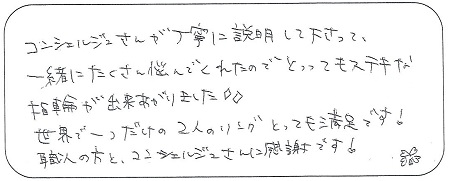 コンシェルジュさんが丁寧に説明して下さって、
一緒にたくさん悩んでくれたのでとってもステキな
指輪が出来あがりました◇◇
世界で一つだけの2人のリングとっても満足です!
職人の方と、コンシェルジュさんに感謝です!